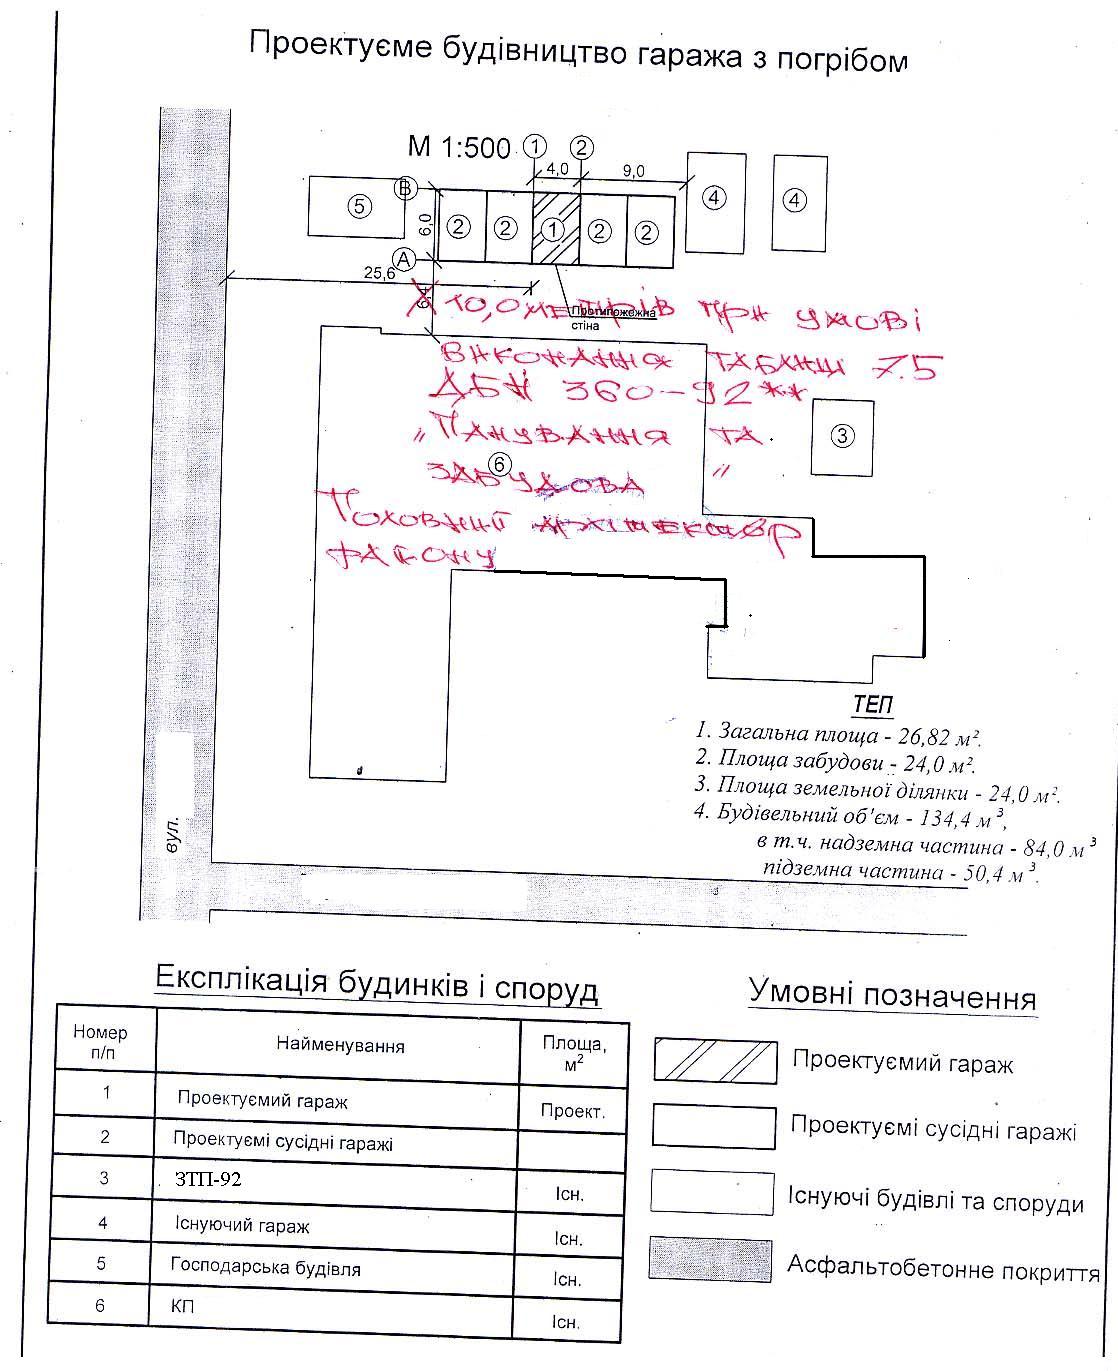 Проектуєме будівництво гаража з погрібом
М 1:500
1
2
4,0
9,0
В
5
2
2
1
2
2
4
4
6,0
А
25,6
Протипожежна
стіна
10,0 метрів при умові
виконання таблиці 7.5
ДБН 360-92**
„Панування та
забудова"
6
3
Головний архітектор
району
ТЕП
1. Загальна площа - 26,82 м².
2. Площа забудови - 24,0 м².
3. Площа земельної ділянки - 24,0 м².
4. Будівельний об'єм - 134,4 м³,
в т.ч. надземна частина - 84,0 м³
підземна частина - 50,4 м³.
вул.
Експлікація будинків і споруд
Номер п/п Найменування Площа, м²
1 Проектуємий гараж Проект.
2 Проектуємі сусідні гаражі
3 ЗТП-92 Існ.
4 Існуючий гараж Існ.
5 Господарська будівля Існ.
6 КП Існ.
Умовні позначення
Проектуємий гараж
Проектуємі сусідні гаражі
Існуючі будівлі та споруди
Асфальтобетонне покриття